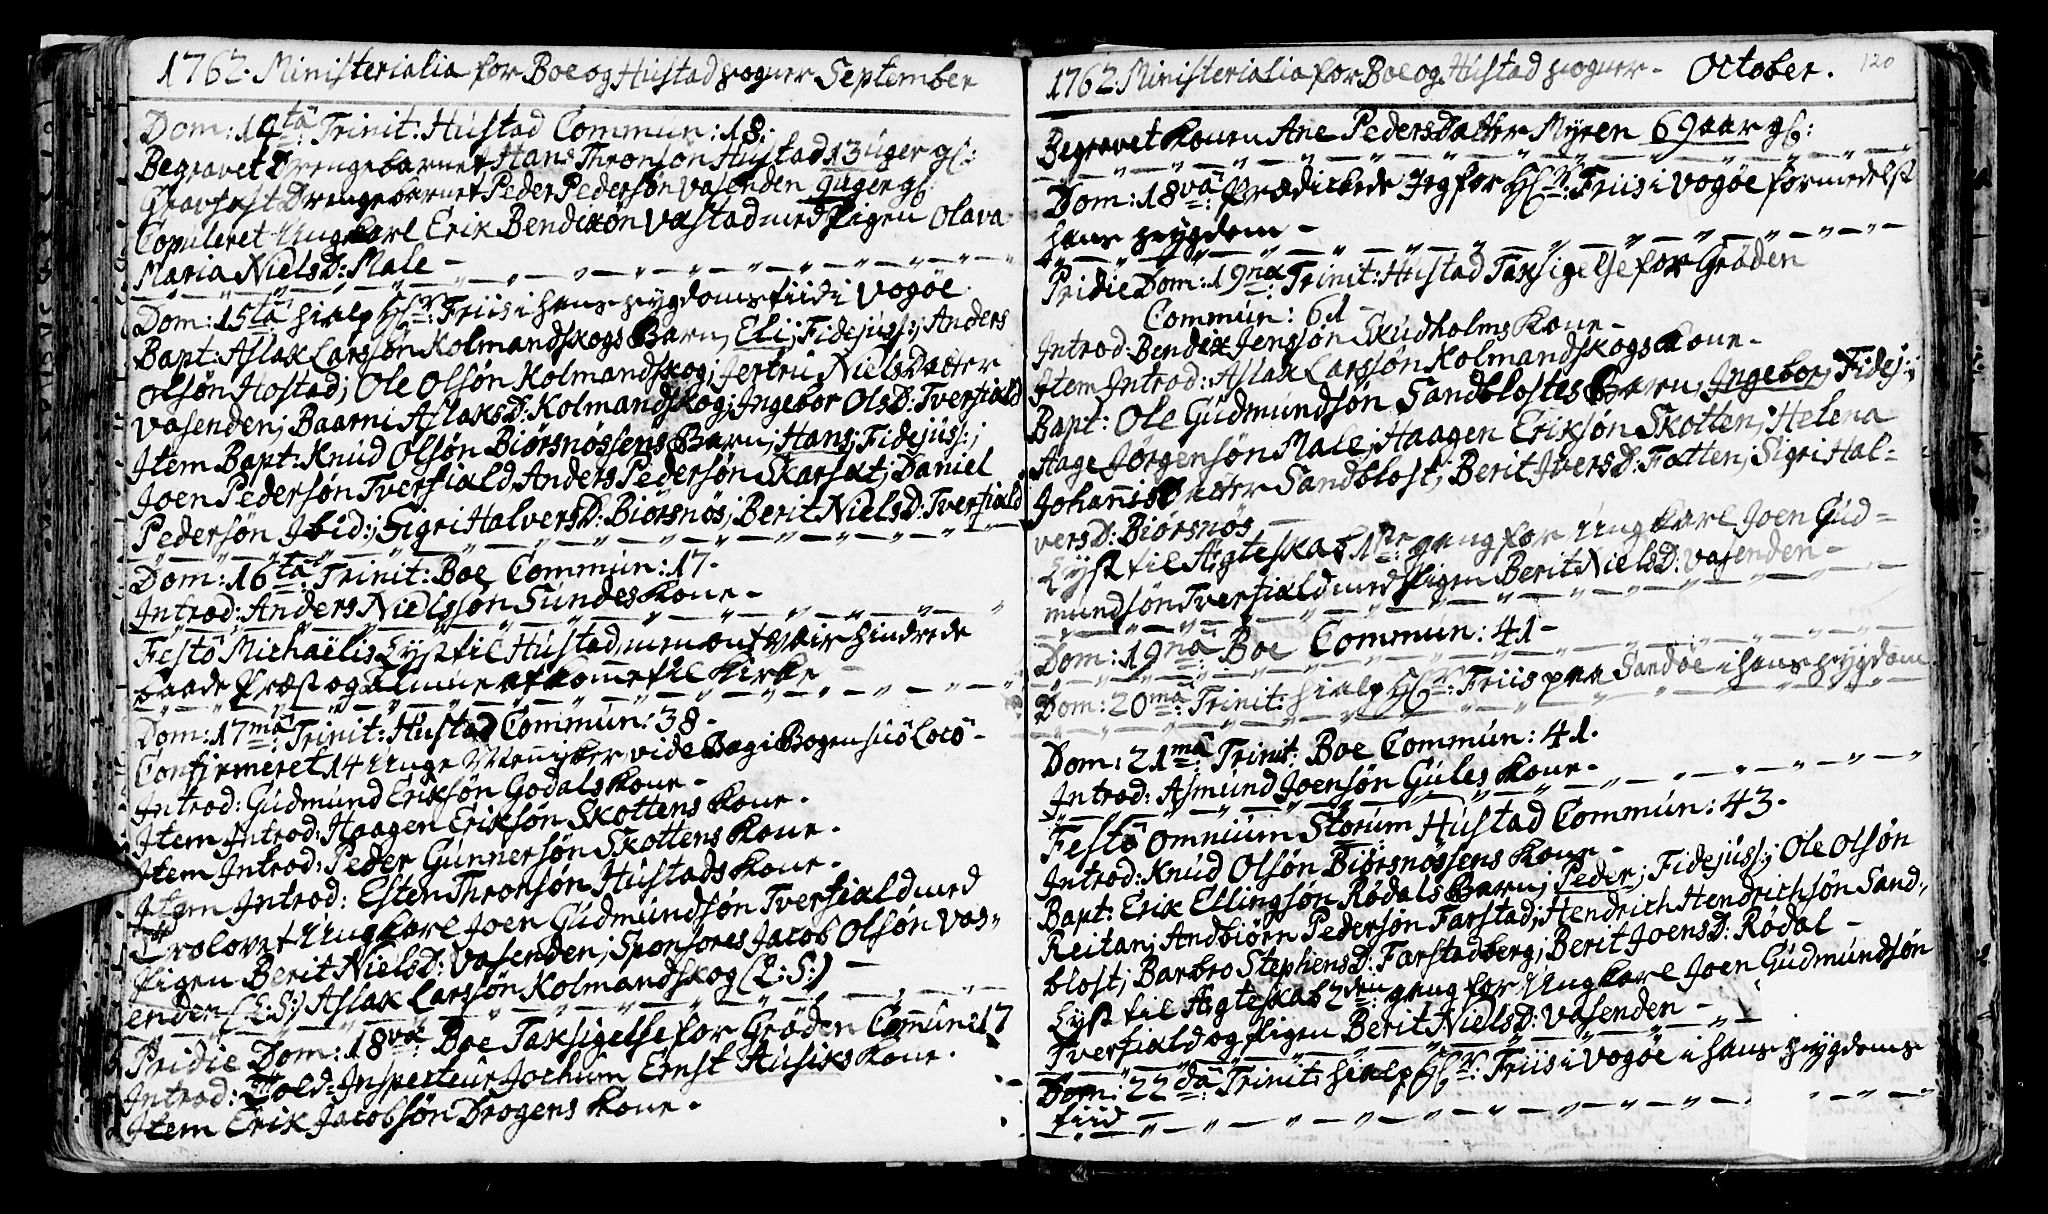 1762. Ministerialia for Boe og Hustad sogner September
Dom: 14ta: Trinit: Hustad Commun: 18:
Begravet Drengebarnet Hans Thronsøn Hustad 13 uger gl:
Graffæst Drengebarnet Peder Pedersøn Vasenden 9 uger gl:
Copuleret Ungkarl Erik Bendixøn Vastad med Pigen Olava
Maria NielsD: Male -
Dom: 15ta hialp Hr: Friis i hans sygdoms tiid i Vogøe
Bapt: Aslak Larssøn Kolmandskogs Barn, Eli; Fidejuss:; Anders
Olsøn Hostad; Ole Olsøn Kolmandskog; Jertru NielsDatter
Vasenden; Baarni AslaksD: Kolmandskog; Ingebor OlsD: Tverfiald
Item Bapt: Knud Olsøn Biørsnøssens Barn; Hans; Fidejuss:;
Joen Pedersøn Tverfiald, Anders Pedersøn Skarsæt; Daniel
Pedersøn Ibid:; Sigri HalversD: Biørsnøs; Berit NielsD: Tverfiald
Dom: 16ta: Trinit: Boe Commun: 17.
Introd: Anders Nielssøn Sundes Kone -
Festo Michaëlis Lyst til Hustad, men ont Veir hindrede
baade Præst og Almue at kome til Kirke
Dom: 17ma: Trinit: Hustad Commun: 38 -
Confirmeret 14 Unge Meniсker vide Bag i Bogen suo Loco -
Introd: Gudmund Eriksøn Godals Kone -
Item Introd: Haagen Eriksøn Skottens Kone.
Item Introd: Peder Gunnersøn Skottens Kone -
Item Introd: Esten Thronsøn Hustads Kone.
Trolovet Ungkarl Joen Gudmundsøn Tverfiald med
Pigen Berit NielsD: Vasenden; Sponsores Jacob Olsøn Vas-
enden (L:S:) Aslak Larssøn Kolmandskog (L:S:) -
Pridie Dom: 18va: Boe Taksigelse for Grøden Comun: 17
Introd: Told-Inspecteur Jochum Ernst Husiks Kone.
Item Erik Jacobsøn Drogens Kone -
1762. Ministerialia for Boe og Hustad sogner - October. 120
Begravet Konen Ane PedersDatter Myren 69 aar gl:
Dom: 18va: prædickede Jeg for Hr: Friis i Vogøe formedelst
hans sygdom -
Pridie Dom: 19na Trinit: Hustad Taksigelse for Grøden
Commun: 61 -
Introd: Bendix Jenssøn Skudholms Kone -
Item Introd: Aslak Larssøn Kolmandskogs Kone -
Bapt: Ole Gudmundsøn Sandblostes Barn, Ingebor, Fidej:;
Aage Jørgensøn Male; Haagen Eriksøn Skotten; Helena
JohannisDatter Sandblost; Berit IversD: Fatten; Sigri Hal-
versD: Biørsnøs -
Lyst til Ægteskab 1ste gang for Ungkarl Joen Gud-
mundsøn Tverfiald med Pigen Berit NielsD: Vasenden -
Dom: 19na: Boe Commun: 41 -
Dom: 20ma: Trinit: hialp Hr: Friis paa Sandøe i hans sygdom
Dom: 21ma: Trinit: Boe Commun: 41.
Introd: Asmund Joensøn Gules Kone -
Festo Omnium Storum Hustad Commun: 43.
Introd: Knud Olsøn Biørsnøssens Kone -
Bapt: Erik Ellingsøn Rødals Barn; Peder; Fidejuss:; Ole Olsøn
Reitan; Andbiørn Pedersøn Farstad; Hendrich Hendrichsøn Sand-
blost; Barbro StephensD: Farstadberg; Berit JoensD: Rødal -
Lyst til Ægteskab 2den gang for Ungkarl Joen Gudmundsøn
Tverfiald og Pigen Berit NielsD: Vasenden -
Dom: 22da: Trinit: hialp Hr: Friis i Vogøe i hans sygdoms
tiid -